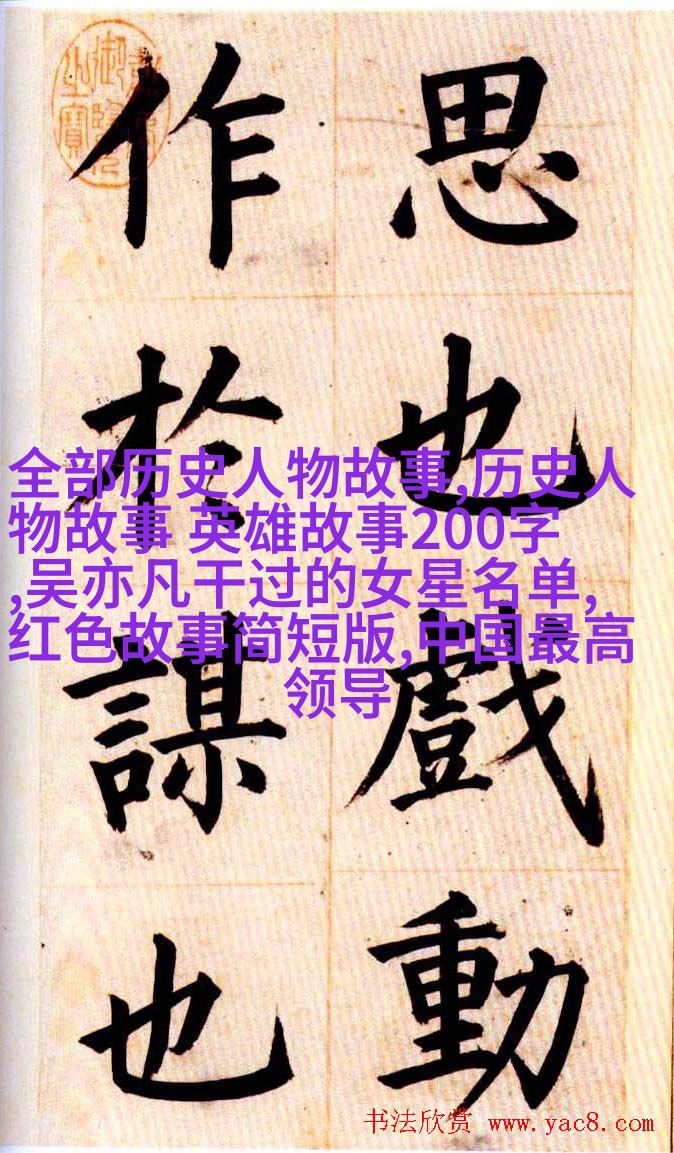 思也戲動
作於謀也
全部历史人物故事,历史人
物故事 英雄故事200字
,吴亦凡干过的女星名单,
红色故事简短版,中国最高
领导
书法欣赏 www.yac8.com